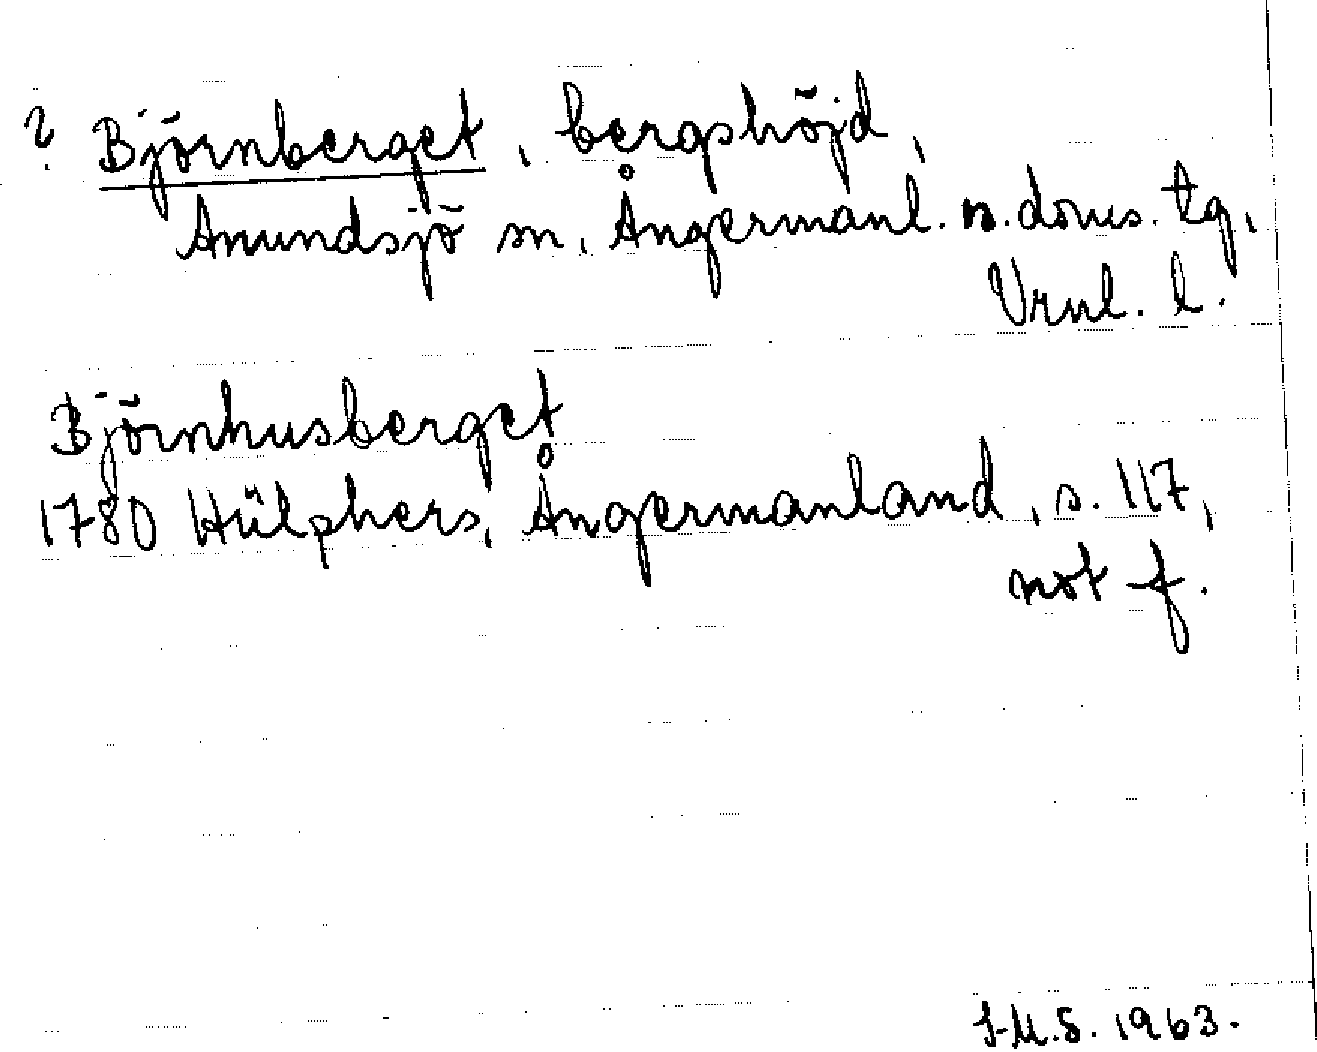 ? Björnberget, bergshöjd,
Anundsjö sn, Ångermanl. n. doms. tg,
Vrnl. l.
Björnhusberget
1780 Hülphers, Ångermanland, s. 117,
not f.
J-M.S. 1963.